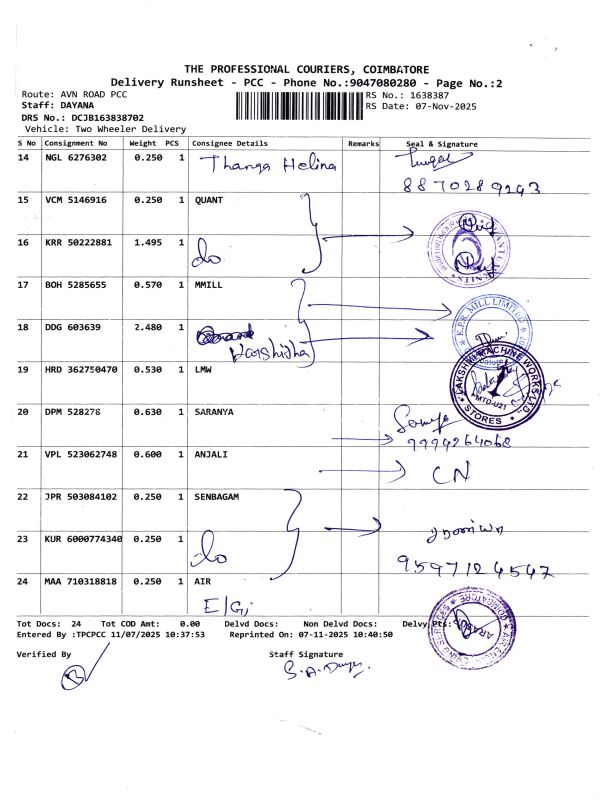 THE PROFESSIONAL COURIERS, COIMBATORE
Delivery Runsheet - PCC - Phone No.:9047080280 - Page No.:2
Route: AVN ROAD PCC
RS No.: 1638387
Staff: DAYANA
RS Date: 07-Nov-2025
DRS No.: DCJB163838702
Vehicle: Two Wheeler Delivery
S No Consignment No Weight PCS Consignee Details Remarks Seal & Signature
14 NGL 6276302 0.250 1 Thanga Helina
8870289293
15 VCM 5146916 0.250 1 QUANT
16 KRR 50222881 1.495 1 do
17 BOH 5285655 0.570 1 MMILL
K.P.R. MILL LIMITED
18 DDG 603639 2.480 1 Harshidha
19 HRD 362750470 0.530 1 LMW
LAKSHMI MACHINE WORKS LTD.
MTD-U21
STORES
20 DPM 528278 0.630 1 SARANYA
9994264068
21 VPL 523062748 0.600 1 ANJALI CN
22 JPR 503084102 0.250 1 SENBAGAM
23 KUR 6000774340 0.250 1 do
9597124547
24 MAA 710318818 0.250 1 AIR
E/Gi
Tot Docs: 24 Tot COD Amt: 0.00 Delvd Docs: Non Delvd Docs: Delvy Pts:
Entered By :TPCPCC 11/07/2025 10:37:53 Reprinted On: 07-11-2025 10:40:50
Verified By Staff Signature